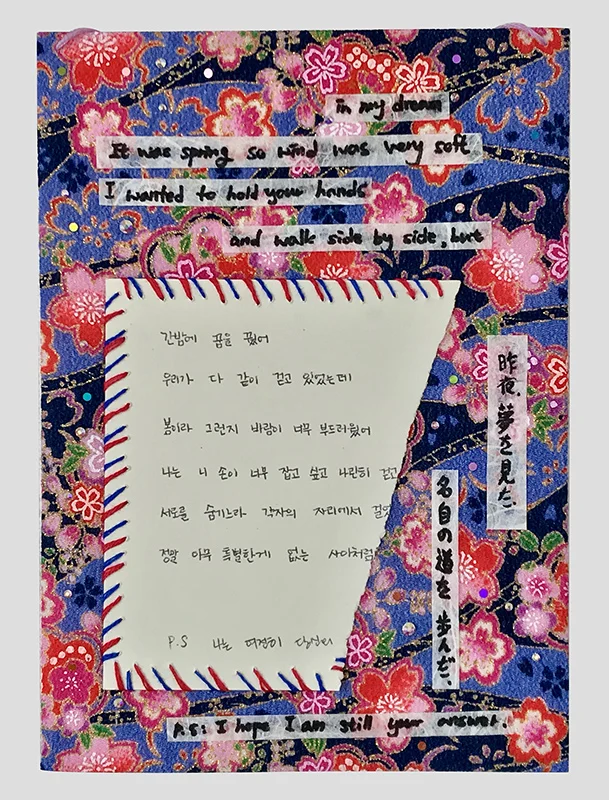 in my dream
It was spring so wind was very soft
I wanted to hold your hands
and walk side by side, but
간밤에 꿈을 꿨어
우리가 다 같이 걷고 있었는데
봄이라 그런지 바람이 너무 부드러웠어
나는 니 손이 너무 잡고 싶고 나란히 걷고
서로를 숨기느라 각자의 자리에서
정말 아무 특별한게 없는 사이처럼
P.S 나는 여전히 당신의
昨夜、夢を見た、
名自の道を歩んだ、
P.S: I hope I am still your answer.